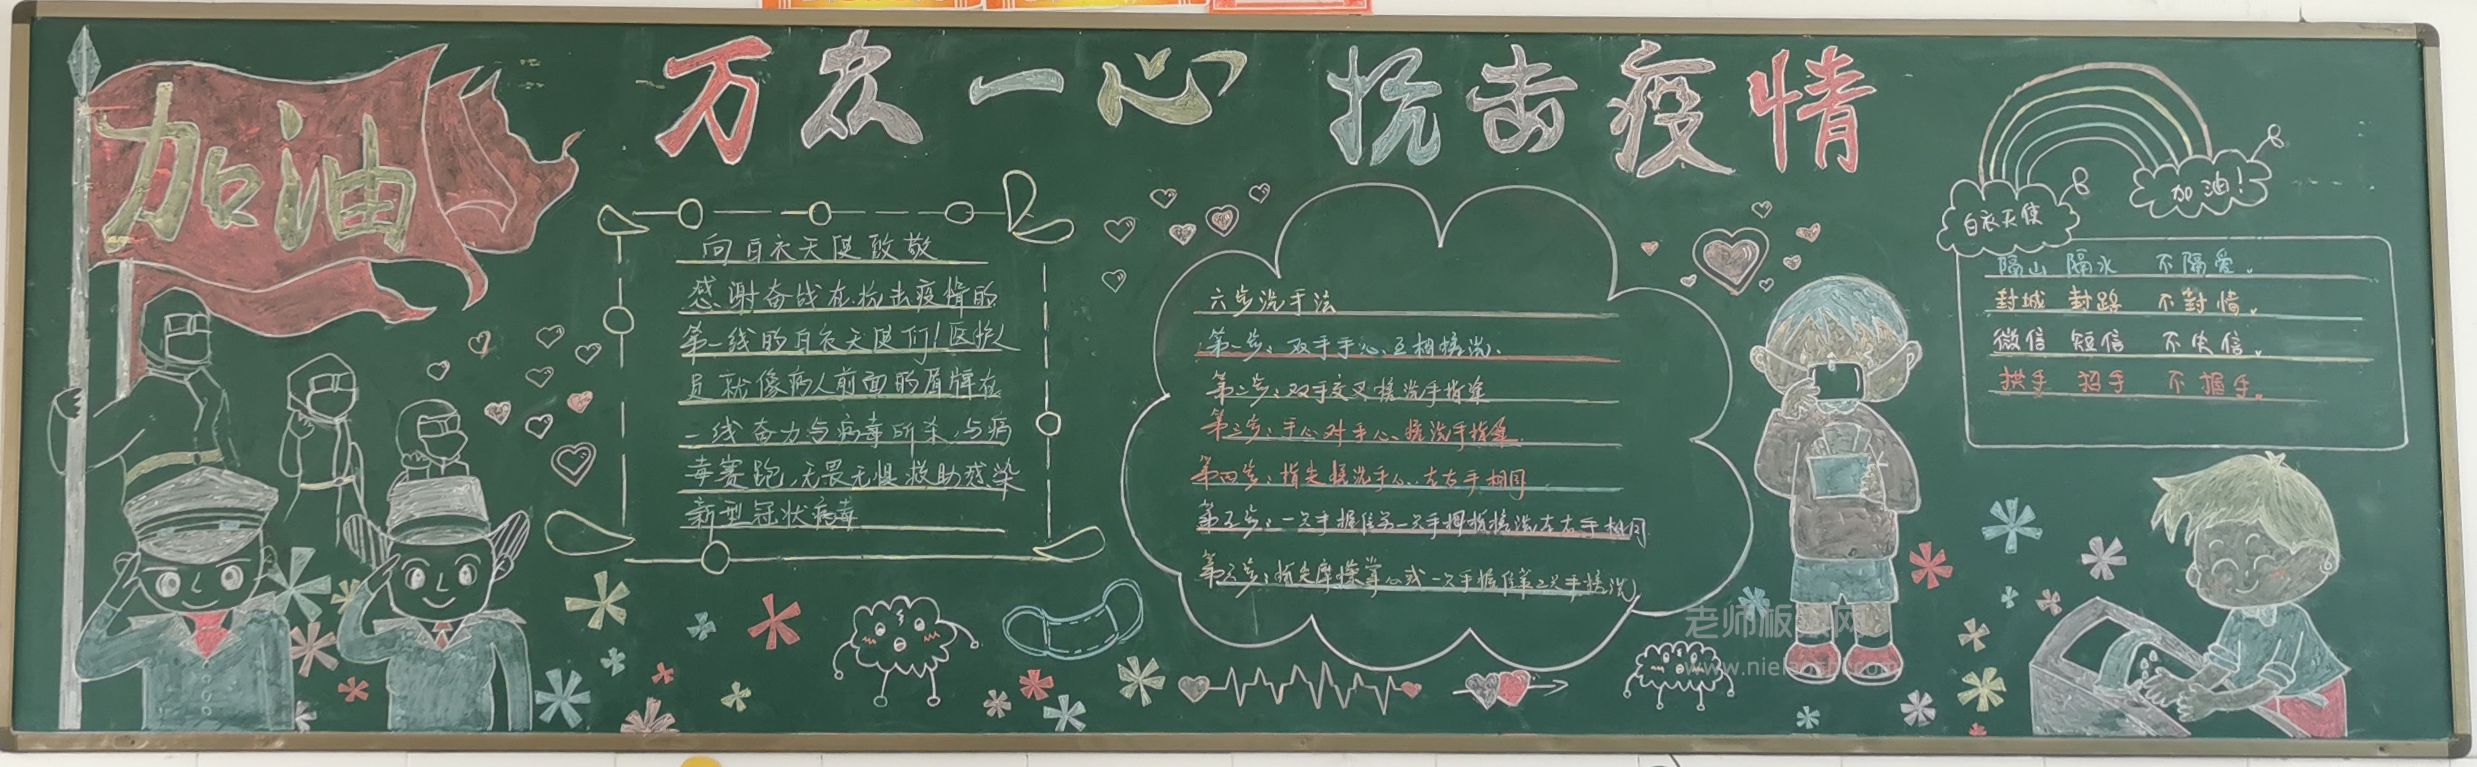 加油
万众一心 抗击疫情
向白衣天使致敬
感谢奋战在抗击疫情的
第一线的白衣天使们！医护人
员就像病人前面的盾牌在
一线奋力与病毒厮杀，与病
毒赛跑，无畏无惧救助感染
新型冠状病毒
六步洗手法
第一步：双手手心互相搓洗.
第二步：双手交叉搓洗手指缝
第三步：手心对手心、搓洗手指缝.
第四步：指尖搓洗手心，左右手相同
第五步：一只手握住另一只手拇指搓洗左右手相同
第六步：指尖摩擦掌心或一只手握住第二只手搓洗
白衣天使
加油！
隔山 隔水 不隔爱。
封城 封路 不封情。
微信 短信 不失信。
拱手 招手 不握手。
www.nielaoshi.com